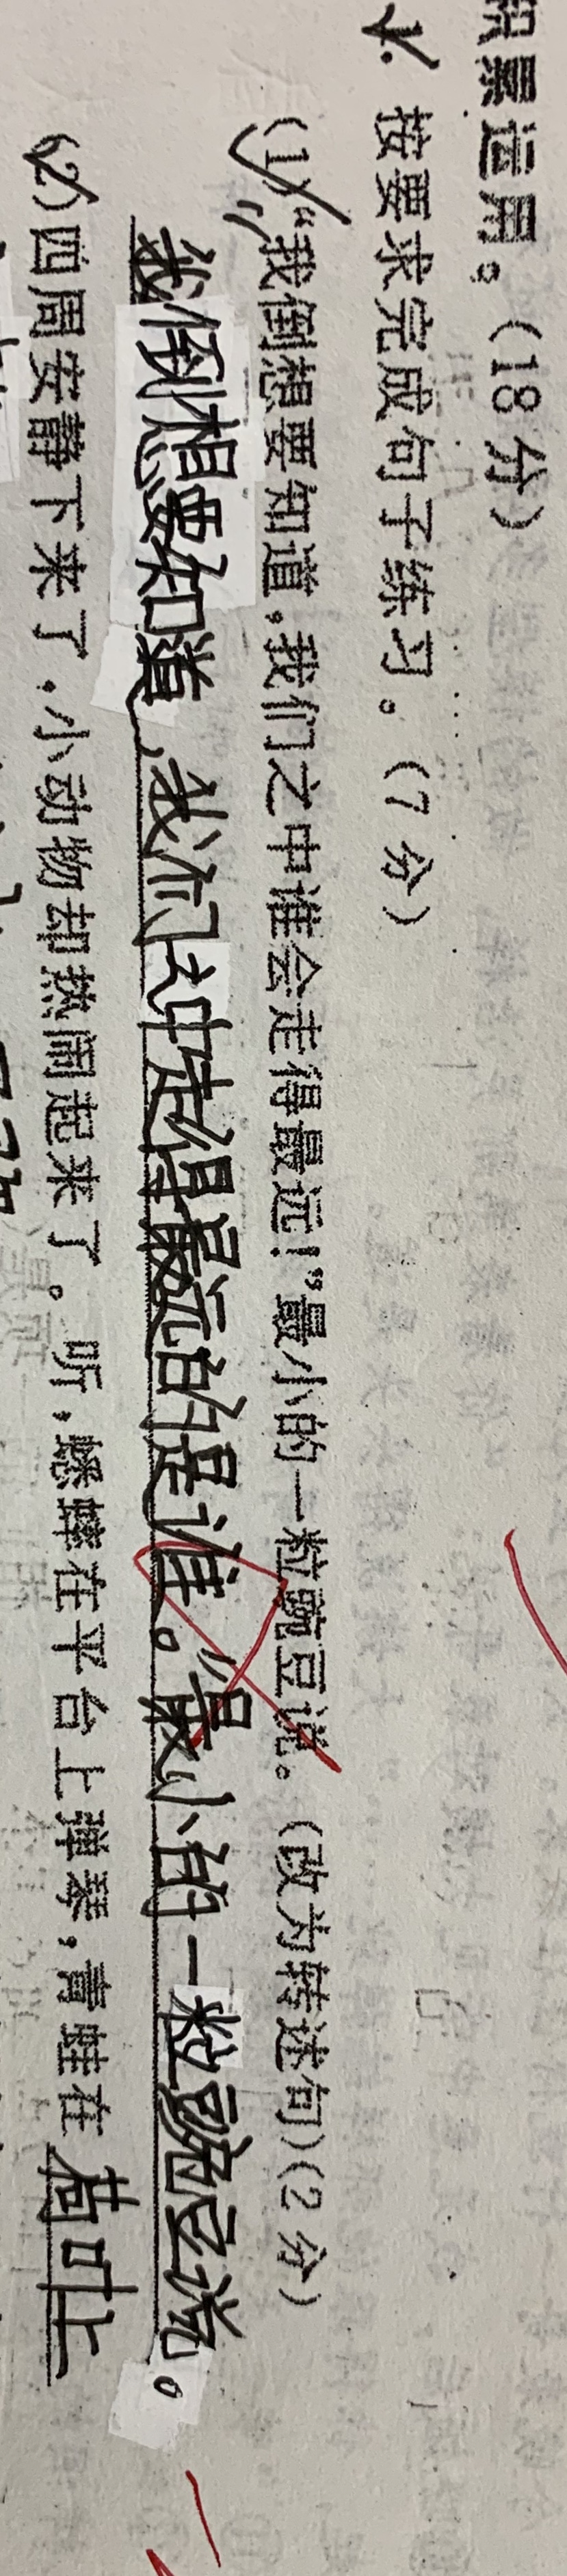 积累运用。（18分）
1. 按要求完成句子练习。（7分）
（1）“我倒想要知道，我们之中谁会走得最远！”最小的一粒豌豆说。（改为转述句）（2分）
“我倒想要知道，我们之中走得最远的是谁。”最小的一粒豌豆说。
（2）四周安静下来了，小动物却热闹起来了。听，蟋蟀在平台上弹琴，青蛙在荷叶上